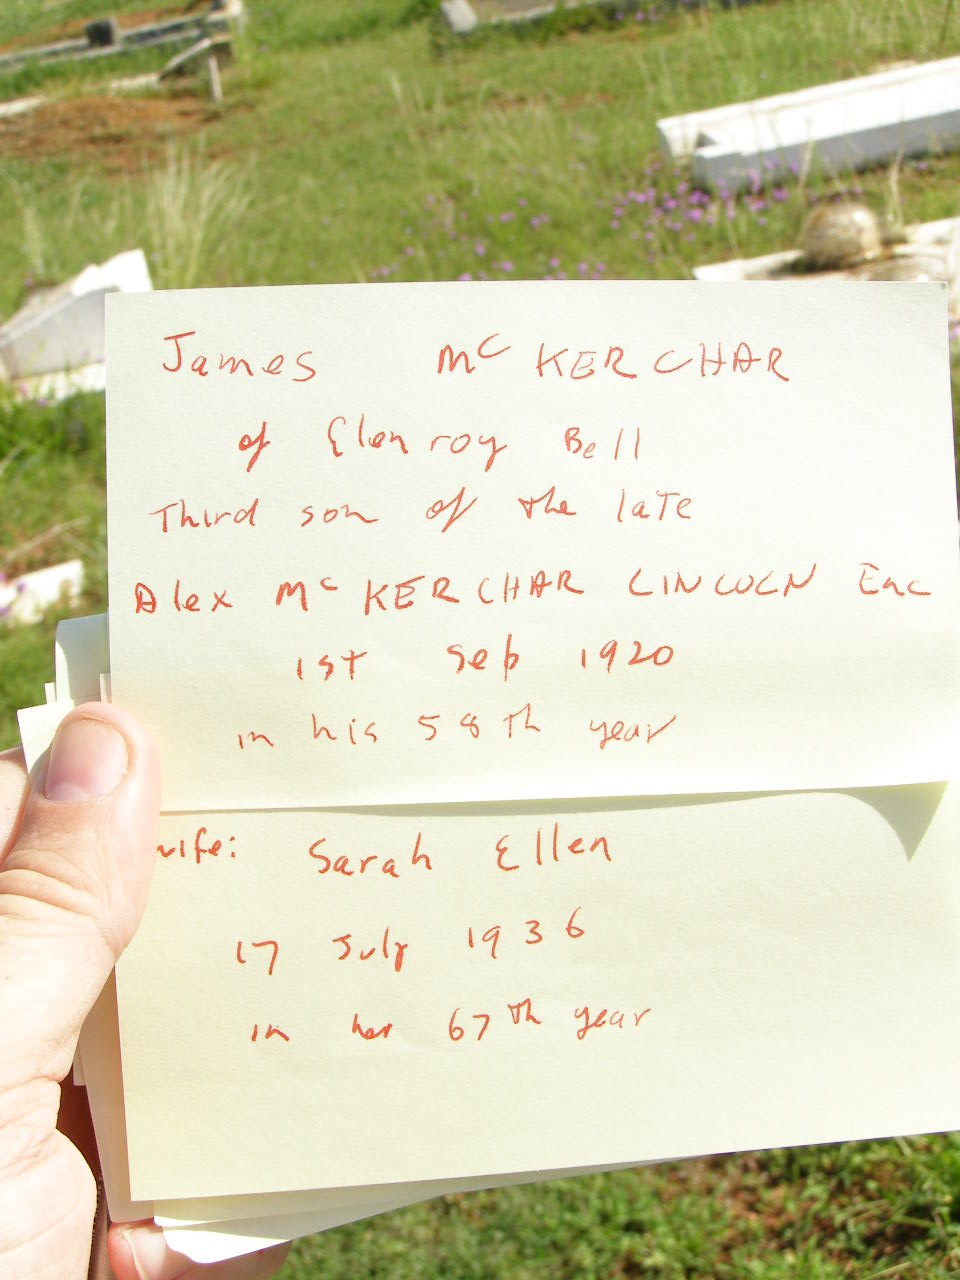 James Mc KERCHAR
of Glenroy Bell
Third son of the late
Alex Mc KERCHAR LINCOLN Enc
1st Sep 1920
in his 58th year
wife: Sarah Ellen
17 July 1936
in her 67th year